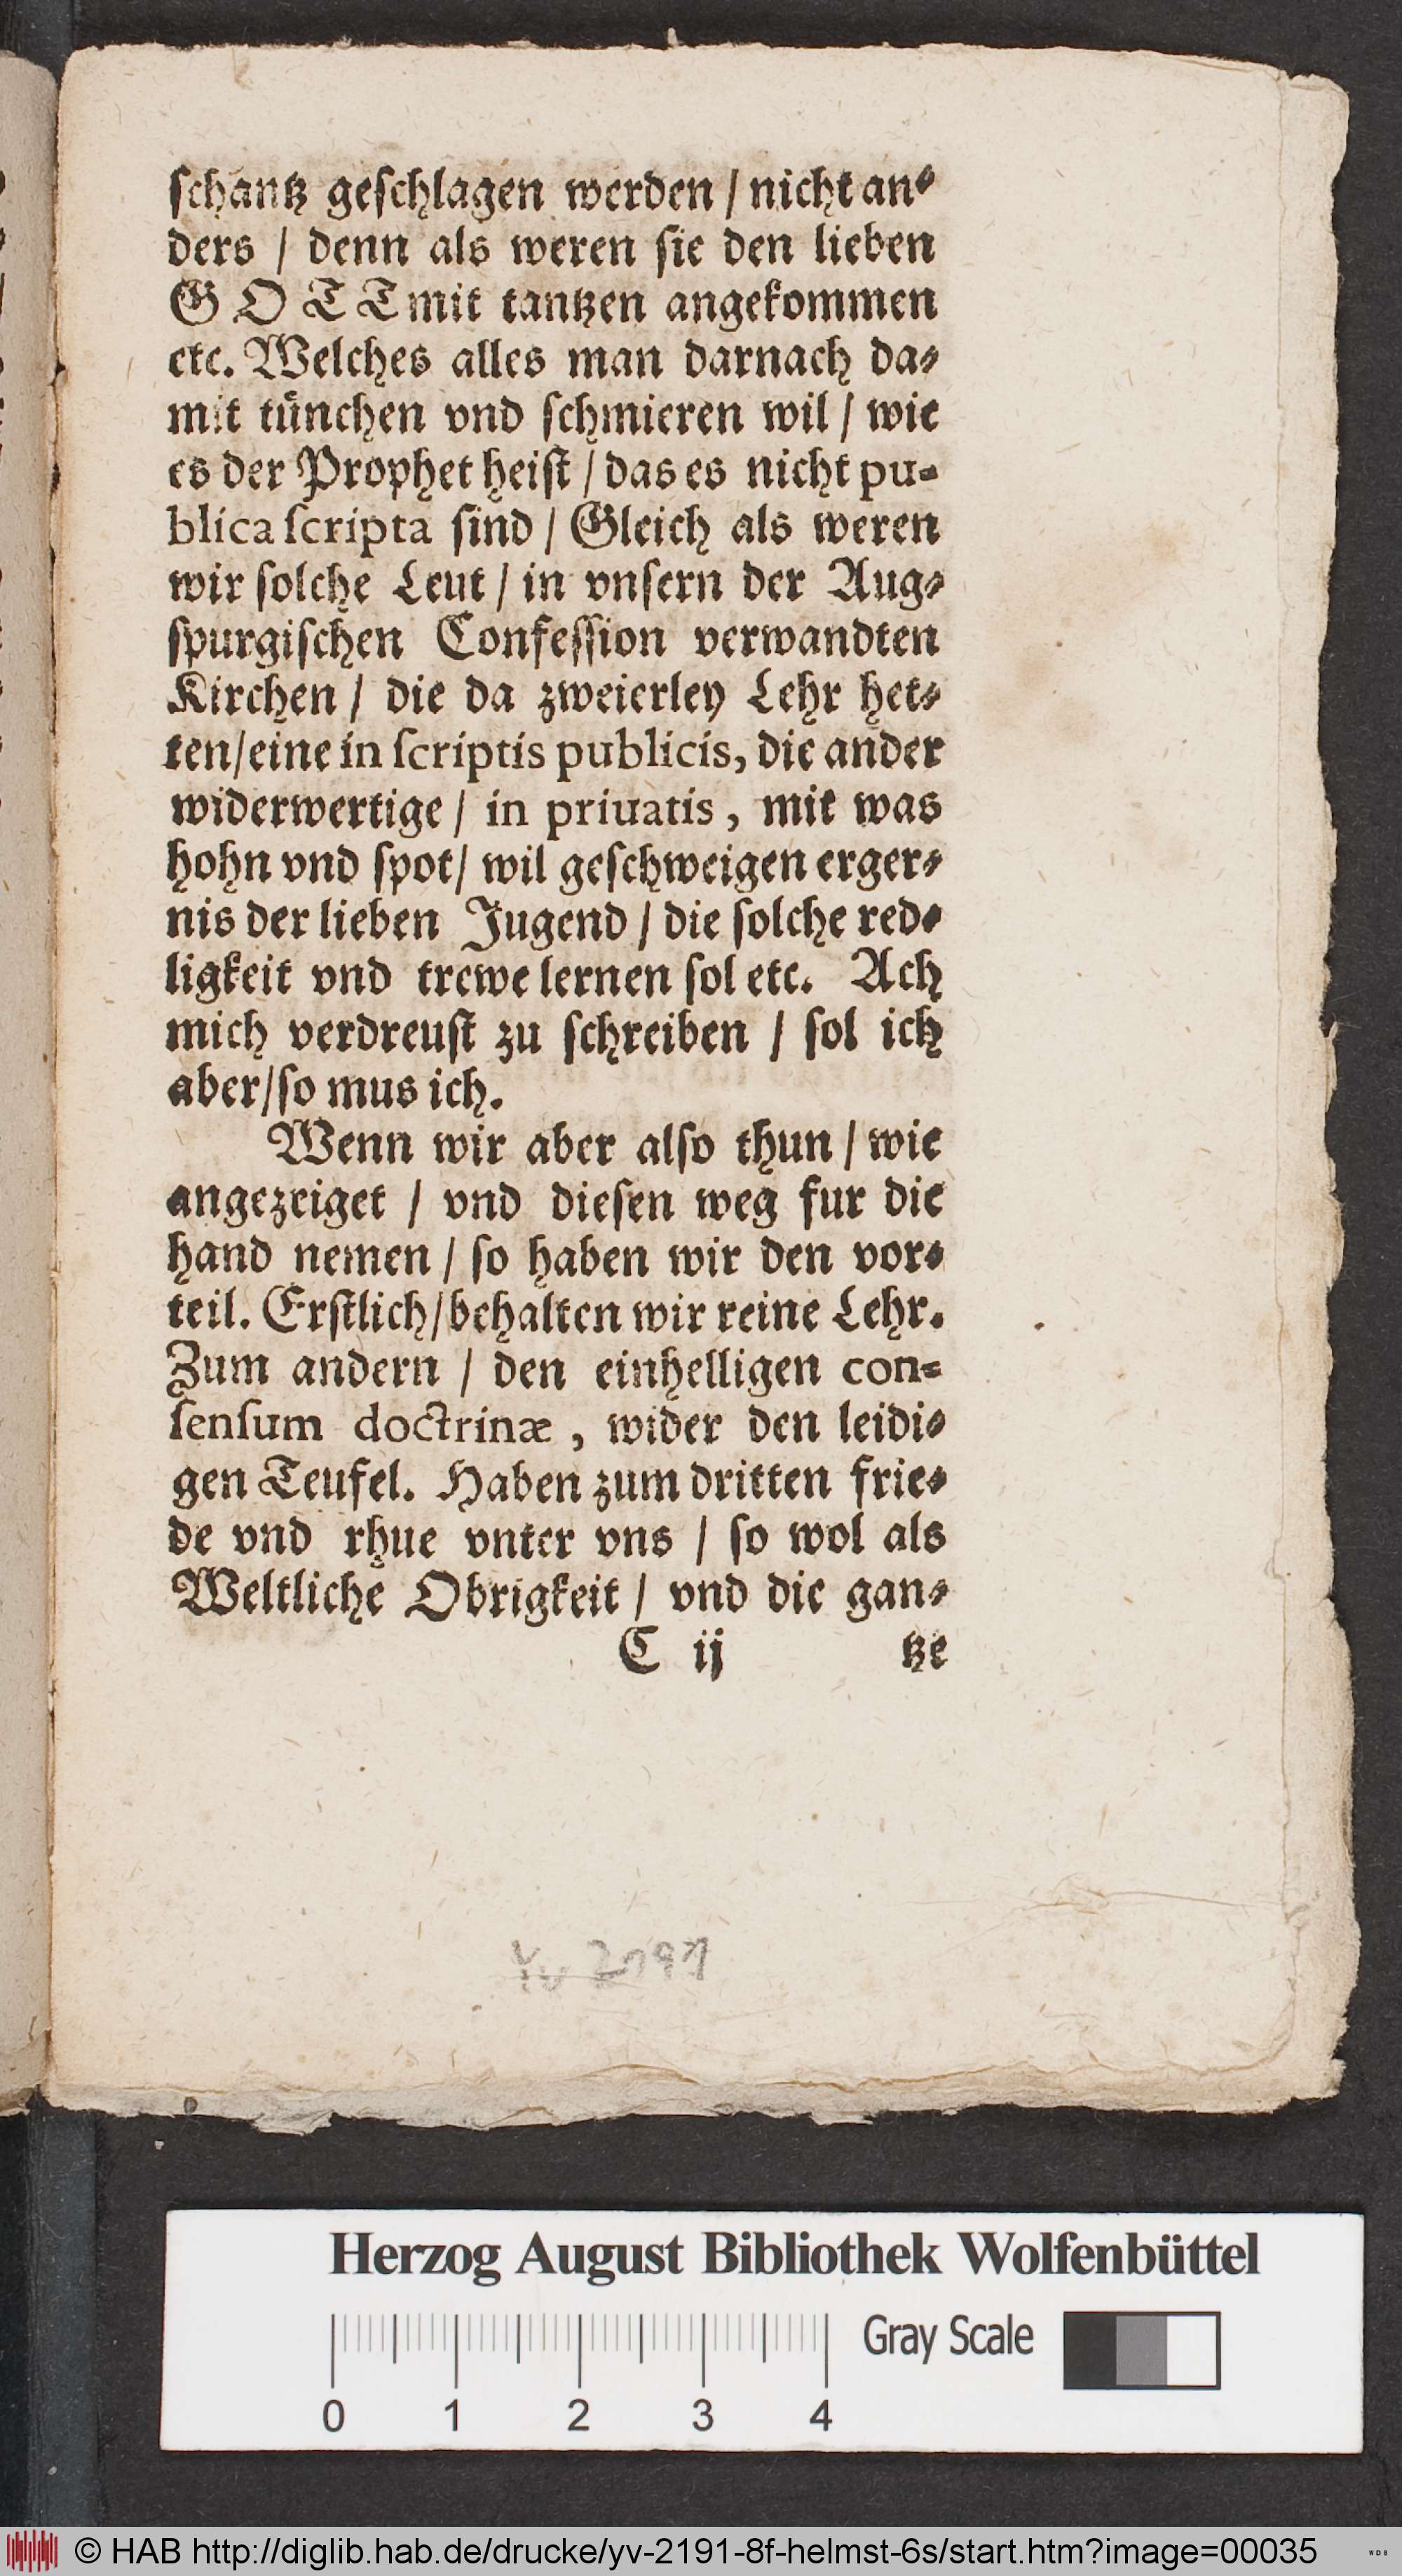 schantz geschlagen werden / nicht an⸗
ders / denn als weren sie den lieben
GOTT mit tantzen angekommen
etc. Welches alles man darnach da⸗
mit tuͤnchen vnd schmieren wil / wie
es der Prophet heist / das es nicht pu⸗
blica scripta sind / Gleich als weren
wir solche Leut / in vnsern der Aug⸗
spurgischen Confession verwandten
Kirchen / die da zweierley Lehr het⸗
ten / eine in scriptis publicis, die ander
widerwertige / in priuatis, mit was
hohn vnd spot / wil geschweigen erger⸗
nis der lieben Jugend / die solche red⸗
ligkeit vnd trewe lernen sol etc. Ach
mich verdreust zu schreiben / sol ich
aber / so mus ich.
Wenn wir aber also thun / wie
angezeiget / vnd diesen weg fur die
hand nemen / so haben wir den vor⸗
teil. Erstlich / behalten wir reine Lehr.
Zum andern / den einhelligen con⸗
sensum doctrinæ, wider den leidi⸗
gen Teufel. Haben zum dritten frie⸗
de vnd rhue vnter vns / so wol als
Weltliche Obrigkeit / vnd die gan⸗
C ij tze
Yv 2191
Herzog August Bibliothek Wolfenbüttel
Gray Scale
0 1 2 3 4
© HAB http://diglib.hab.de/drucke/yv-2191-8f-helmst-6s/start.htm?image=00035